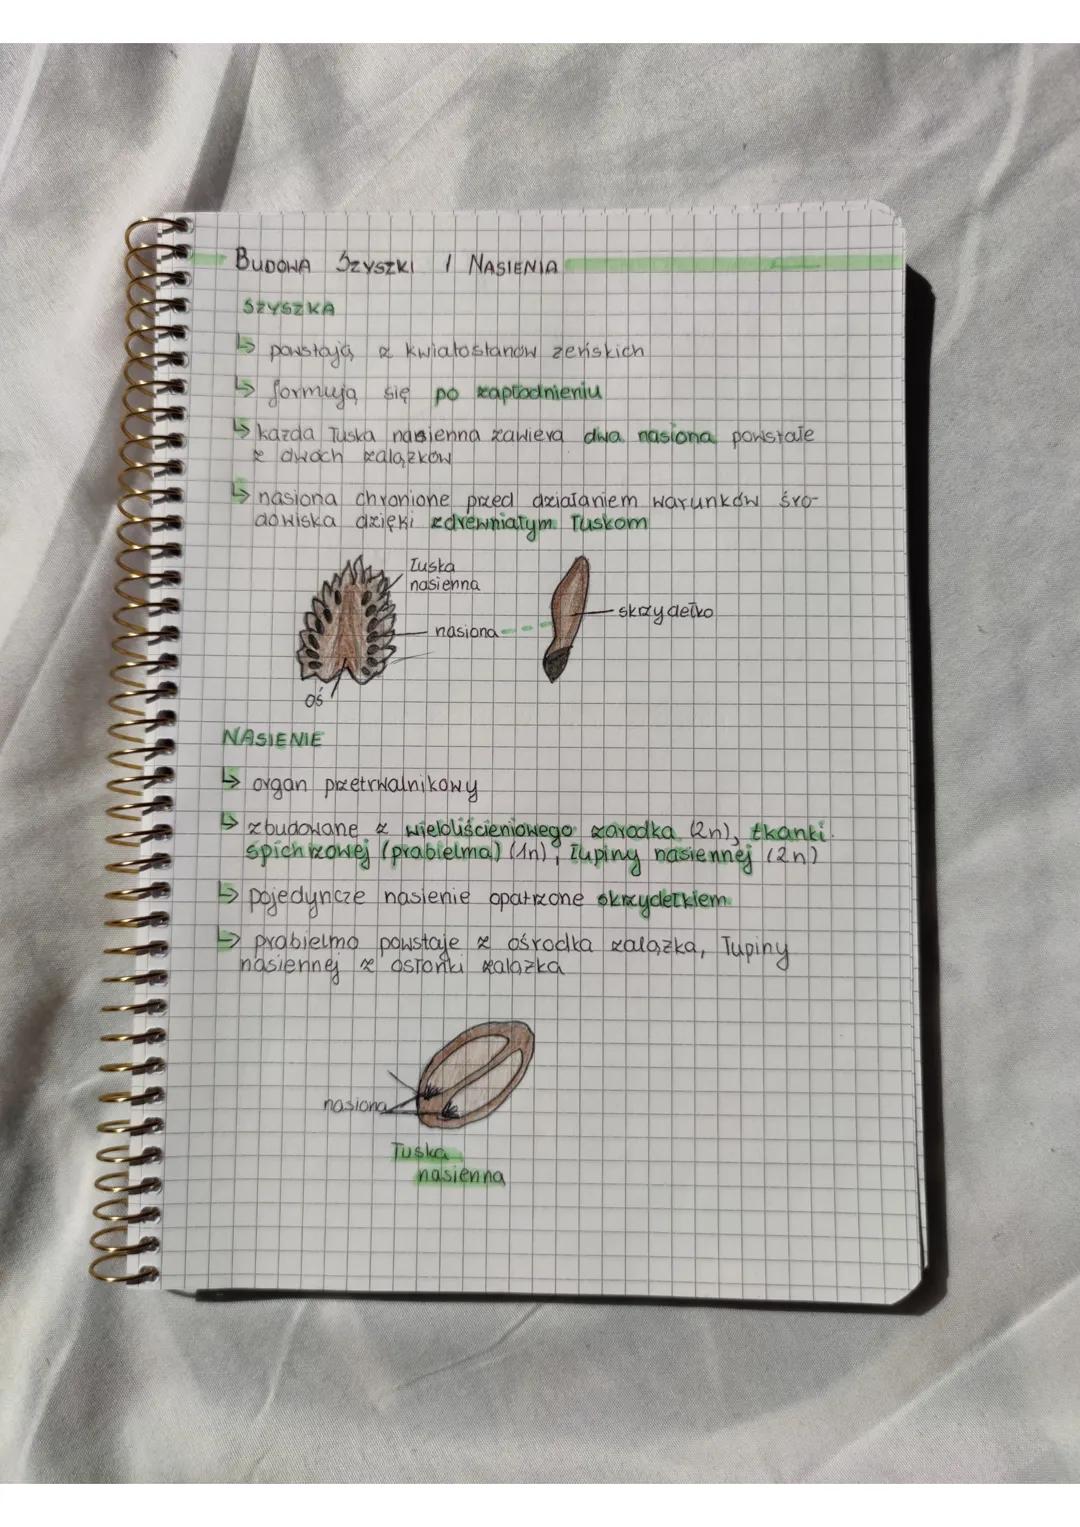 BUDOWA SZYSZKI I NASIENIA
SZYSZKA
↳ powstają z kwiatostanów żeńskich
↳ formują się po zapłodnieniu
↳ każda łuska nasienna zawiera dwa nasiona powstałe
z dwóch zalążków
↳ nasiona chronione przed działaniem warunków śro-
dowiska dzięki zdrewniałym łuskom
łuska
nasienna
nasiona
skrzydełko
oś
NASIENIE
↳ organ przetrwalnikowy
↳ zbudowane z wieloliścieniowego zarodka (2n), tkanki
spichrzowej (prabielma) (1n), łupiny nasiennej (2n)
↳ pojedyncze nasienie opatrzone skrzydełkiem
↳ prabielmo powstaje z ośrodka zalążka, łupiny
nasiennej z osłonki zalążka
nasiona
łuska
nasienna